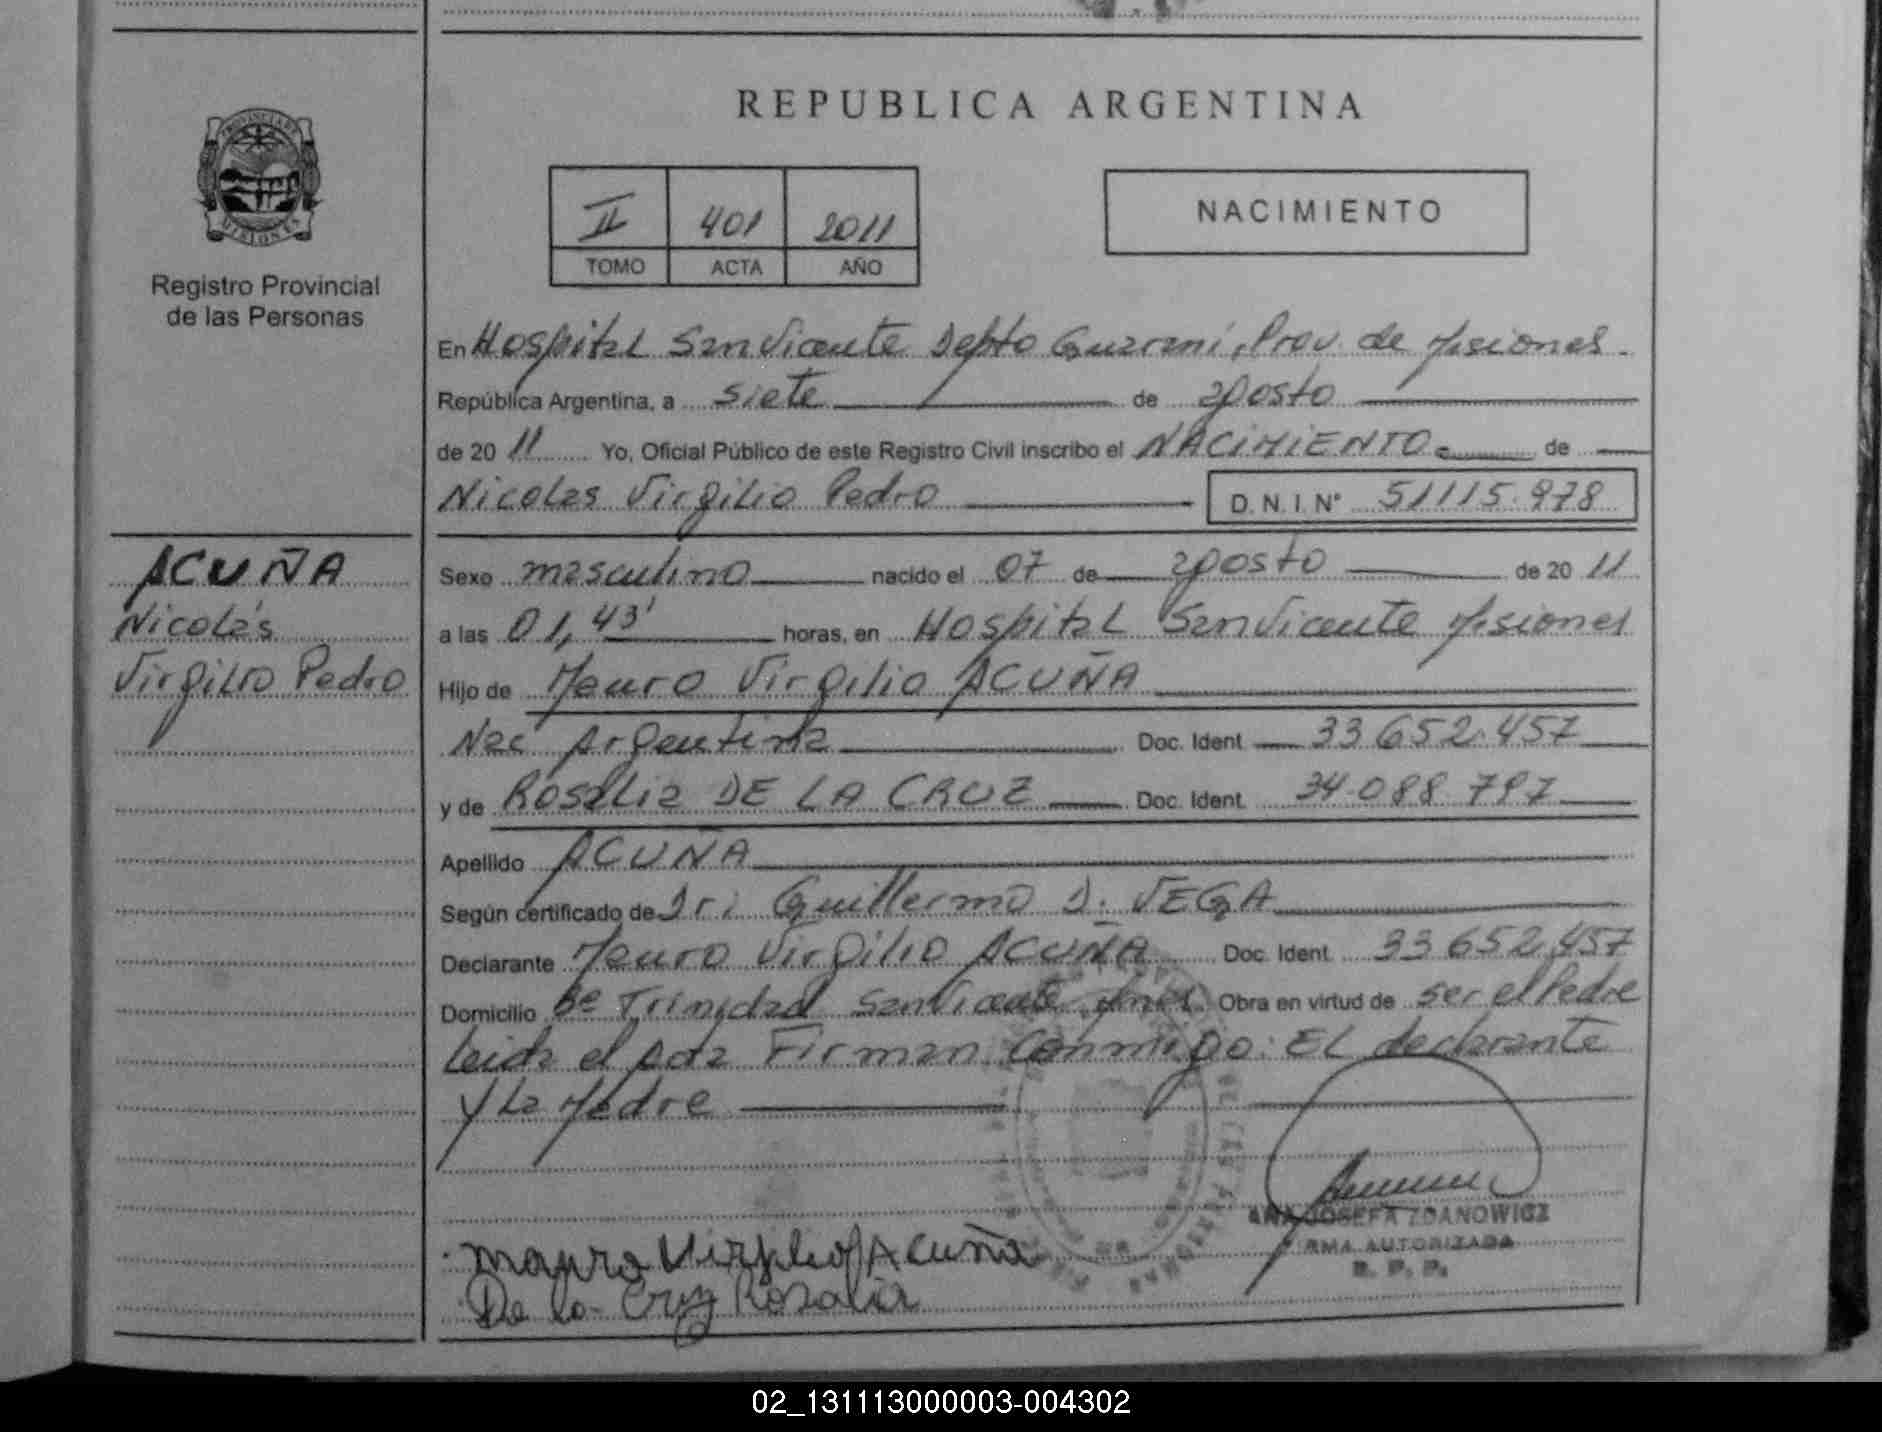 REPUBLICA ARGENTINA
PROVINCIA DE
MISIONES
Registro Provincial
de las Personas
II 401 2011
TOMO ACTA AÑO
NACIMIENTO
En Hospital San Vicente Depto Guaraní, Prov. de Misiones
República Argentina, a siete de agosto
de 20 11 Yo, Oficial Público de este Registro Civil inscribo el NACIMIENTO de
Nicolas Virgilio Pedro D. N. I. N° 51115.978
ACUÑA
Nicolás
Virgilio Pedro
Sexo masculino nacido el 07 de agosto de 20 11
a las 01,43' horas, en Hospital San Vicente Misiones
Hijo de Mauro Virgilio ACUÑA
Nac Argentina Doc. Ident 33 652.457
y de Rosalia DE LA CRUZ Doc. Ident. 34.088 797
Apellido ACUÑA
Según certificado de Dr: Guillermo D. VEGA
Declarante Mauro Virgilio ACUÑA Doc. Ident. 33 652.457
Domicilio Bº Trinidad San Vicente Mnes. Obra en virtud de ser el Padre
Leida el Acta Firman Conmigo: EL declarante
y La Madre
ANA JOSEFA ZDANOWICZ
FIRMA AUTORIZADA
R. P. P.
Mauro Virgilio Acuña
De la Cruz Rosalia
02_131113000003-004302